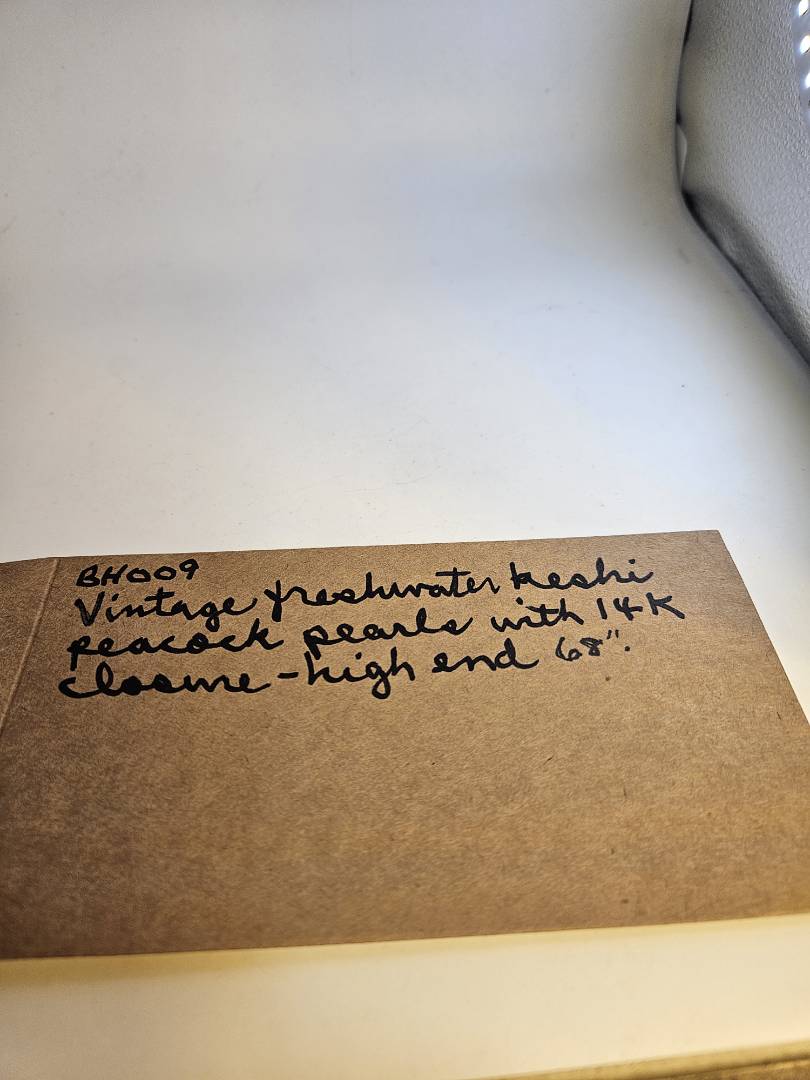 BH009
Vintage freshwater keshi
peacock pearls with 14K
closure - high end 68".